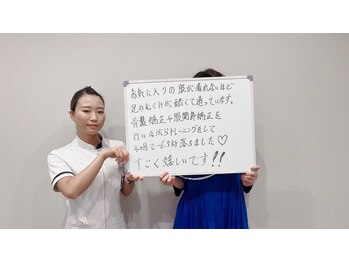 お気に入りの服が着れないほど
足のむくみが酷くて通っています。
骨盤矯正や股関節矯正を
行いながらトレーニングをして
4ヶ月で-6.5kg落ちました♡
すごく嬉しいです!!